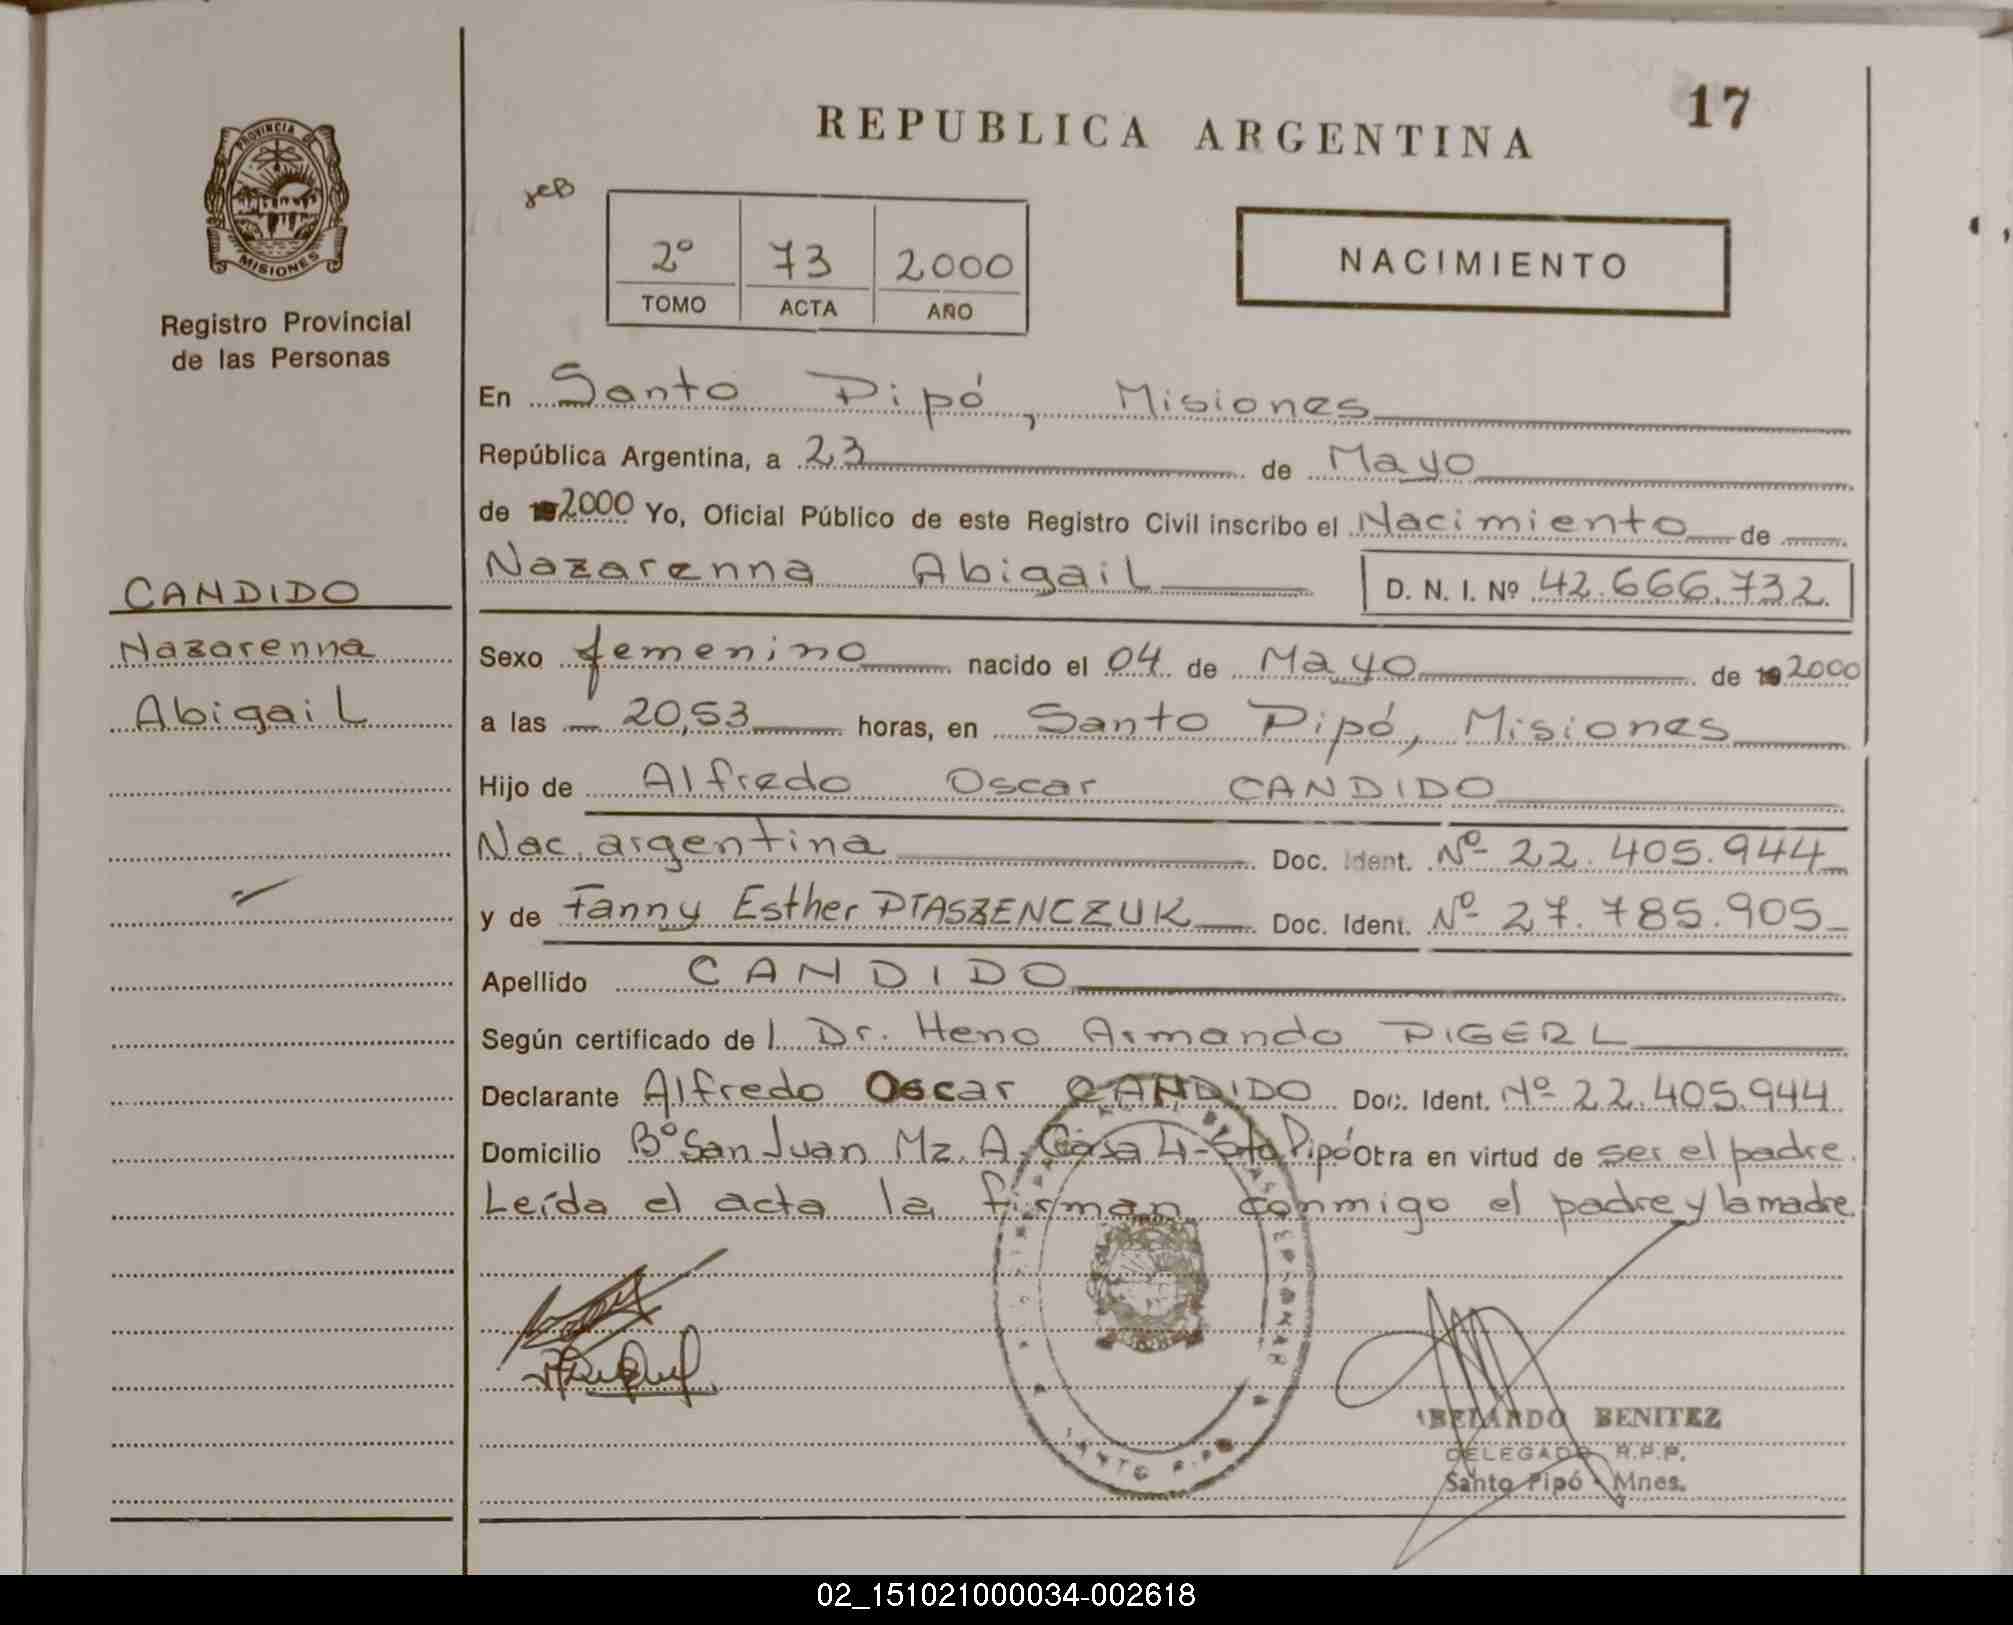 17
REPUBLICA ARGENTINA
PROVINCIA DE
MISIONES
Registro Provincial
de las Personas
2º 73 2000
TOMO ACTA AÑO
NACIMIENTO
En Santo Pipó, Misiones
República Argentina, a 23 de Mayo
de 2000 Yo, Oficial Público de este Registro Civil inscribo el Nacimiento de
Nazarenna Abigail D. N. I. Nº 42.666.732
CANDIDO
Nazarenna
Abigail
Sexo femenino nacido el 04 de Mayo de 2000
a las 20,53 horas, en Santo Pipó, Misiones
Hijo de Alfredo Oscar CANDIDO
Nac. argentina Doc. Ident. Nº 22.405.944
y de Fanny Esther PTASZENCZUK Doc. Ident. Nº 27.785.905
Apellido CANDIDO
Según certificado de l Dr. Heno Armando PIGERL
Declarante Alfredo Oscar CANDIDO Doc. Ident. Nº 22.405.944
Domicilio Bº San Juan Mz. A, Casa 4-Sto Pipó Obra en virtud de ser el padre.
Leída el acta la firman conmigo el padre y la madre
SANTO PIPO
ABELARDO BENITEZ
DELEGADO R.P.P.
Santo Pipó - Mnes.
02_151021000034-002618